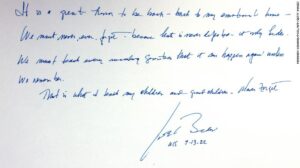 It is a great honor to be back – back to my emotional home –
We must never, ever forget – because hate is never defeated – it only hides –
We must teach every succeeding generation that it can happen again unless
We remember.
That is what I teach my children and grandchildren. Never forget
7.13.22